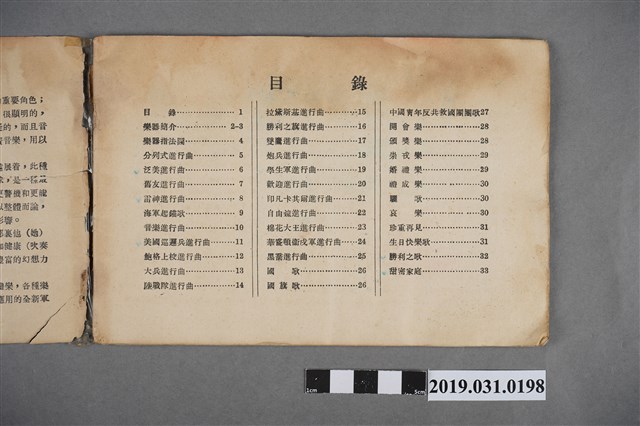 重要角色；
很顯明的，
的，而且音
音樂，用以
展着，此種
以整體而論，
影響。
豐富的幻想力
目　錄
目　錄…………………1
樂器簡介……………2-3
樂器指法圖……………4
分列式進行曲…………5
泛美進行曲……………6
舊友進行曲……………7
雷神進行曲……………8
海軍起錨歌……………9
音樂進行曲……………10
美國巡邏兵進行曲……11
鮑格上校進行曲………12
大兵進行曲……………13
陸戰隊進行曲…………14
拉黛斯基進行曲………15
勝利之旗進行曲………16
雙鷹進行曲……………17
炮兵進行曲……………18
學生軍進行曲…………19
歡迎進行曲……………20
印凡卡其爾進行曲……21
自由鐘進行曲…………22
棉花大王進行曲………23
華盛頓衞戍軍進行曲…24
黑蕾進行曲……………25
國　歌…………………26
國旗歌…………………26
中國青年反共救國團團歌27
開會樂…………………28
頒獎樂…………………28
崇戎樂…………………29
婚禮樂…………………29
禮成樂…………………30
驪　歌…………………30
哀　樂…………………30
珍重再見………………31
生日快樂歌……………31
勝利之歌………………32
甜蜜家庭………………33
1cm
5cm
2019.031.0198